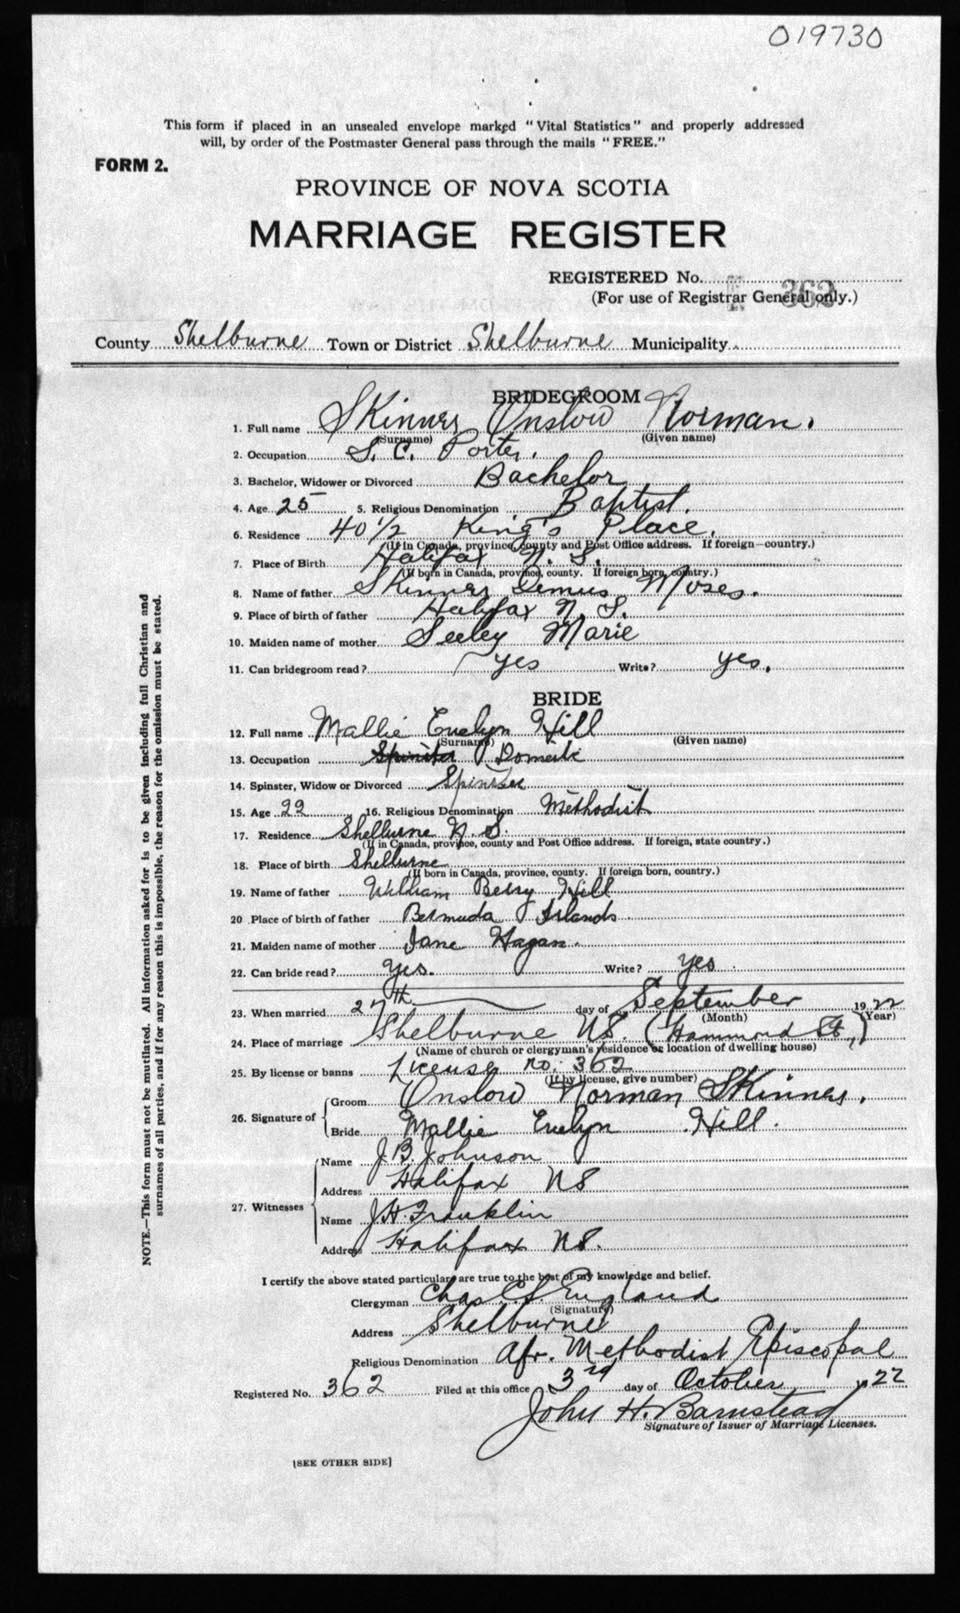 019730
This form if placed in an unsealed envelope marked "Vital Statistics" and properly addressed
will, by order of the Postmaster General pass through the mails "FREE."
FORM 2.
PROVINCE OF NOVA SCOTIA
MARRIAGE REGISTER
REGISTERED No. 362
(For use of Registrar General only.)
County Shelburne Town or District Shelburne Municipality
BRIDEGROOM
1. Full name Skinner Onslow Norman.
(Surname) (Given name)
2. Occupation S. C. Porter.
3. Bachelor, Widower or Divorced Bachelor
4. Age 25 5. Religious Denomination Baptist.
6. Residence 40 1/2 King's Place.
(If in Canada, province, county and Post Office address. If foreign—country.)
7. Place of Birth Halifax N. S.
(If born in Canada, province, county. If foreign born, country.)
8. Name of father Skinner Demus Moses.
9. Place of birth of father Halifax N. S.
10. Maiden name of mother Seeley Marie
11. Can bridegroom read? yes Write? yes.
BRIDE
12. Full name Mallie Evelyn Hill
(Surname) (Given name)
13. Occupation Spinster Domestic
14. Spinster, Widow or Divorced Spinster
15. Age 22 16. Religious Denomination Methodist
17. Residence Shelburne N. S.
(If in Canada, province, county and Post Office address. If foreign, state country.)
18. Place of birth Shelburne
(If born in Canada, province, county. If foreign born, country.)
19. Name of father William Berry Hill
20 Place of birth of father Bermuda Islands
21. Maiden name of mother Jane Hagan.
22. Can bride read? Yes. Write? yes.
23. When married 27th day of September 1922
(Month) (Year)
24. Place of marriage Shelburne NS. (Hammond St.)
(Name of church or clergyman's residence or location of dwelling house)
25. By license or banns License no. 362
(If by license, give number)
26. Signature of Groom Onslow Norman Skinner.
Bride Mallie Evelyn Hill.
27. Witnesses Name J. B. Johnson
Address Halifax NS
Name J. H. Franklin
Address Halifax NS.
I certify the above stated particulars are true to the best of my knowledge and belief.
Clergyman Chas England
(Signature)
Address Shelburne
Religious Denomination Afr. Methodist Episcopal
Registered No. 362 Filed at this office 3rd day of October 1922
John H. Barnstead
Signature of Issuer of Marriage Licenses.
[SEE OTHER SIDE]
NOTE.—This form must not be mutilated. All information asked for is to be given including full Christian and
surnames of all parties, and if for any reason this is impossible, the reason for the omission must be stated.